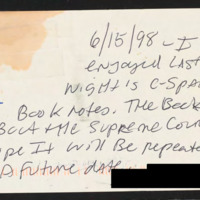 6/15/98 - I
enjoyed last
night's C-Spa
Book Notes. The Book
the Supreme Cour
pe It will be repeate
a future date